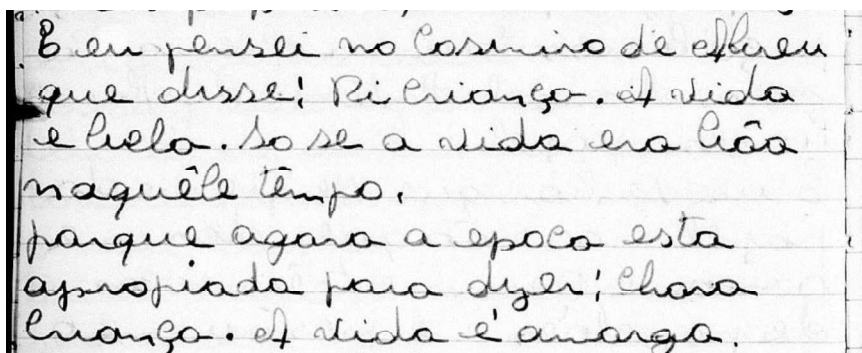 E eu pensei no Casimiro de Abreu
que disse: Ri criança. A vida
e bela. So se a vida era bôa
naquêle têmpo.
porque agora a epoca esta
apropiada para dizer: Chora
criança. A vida é amarga.